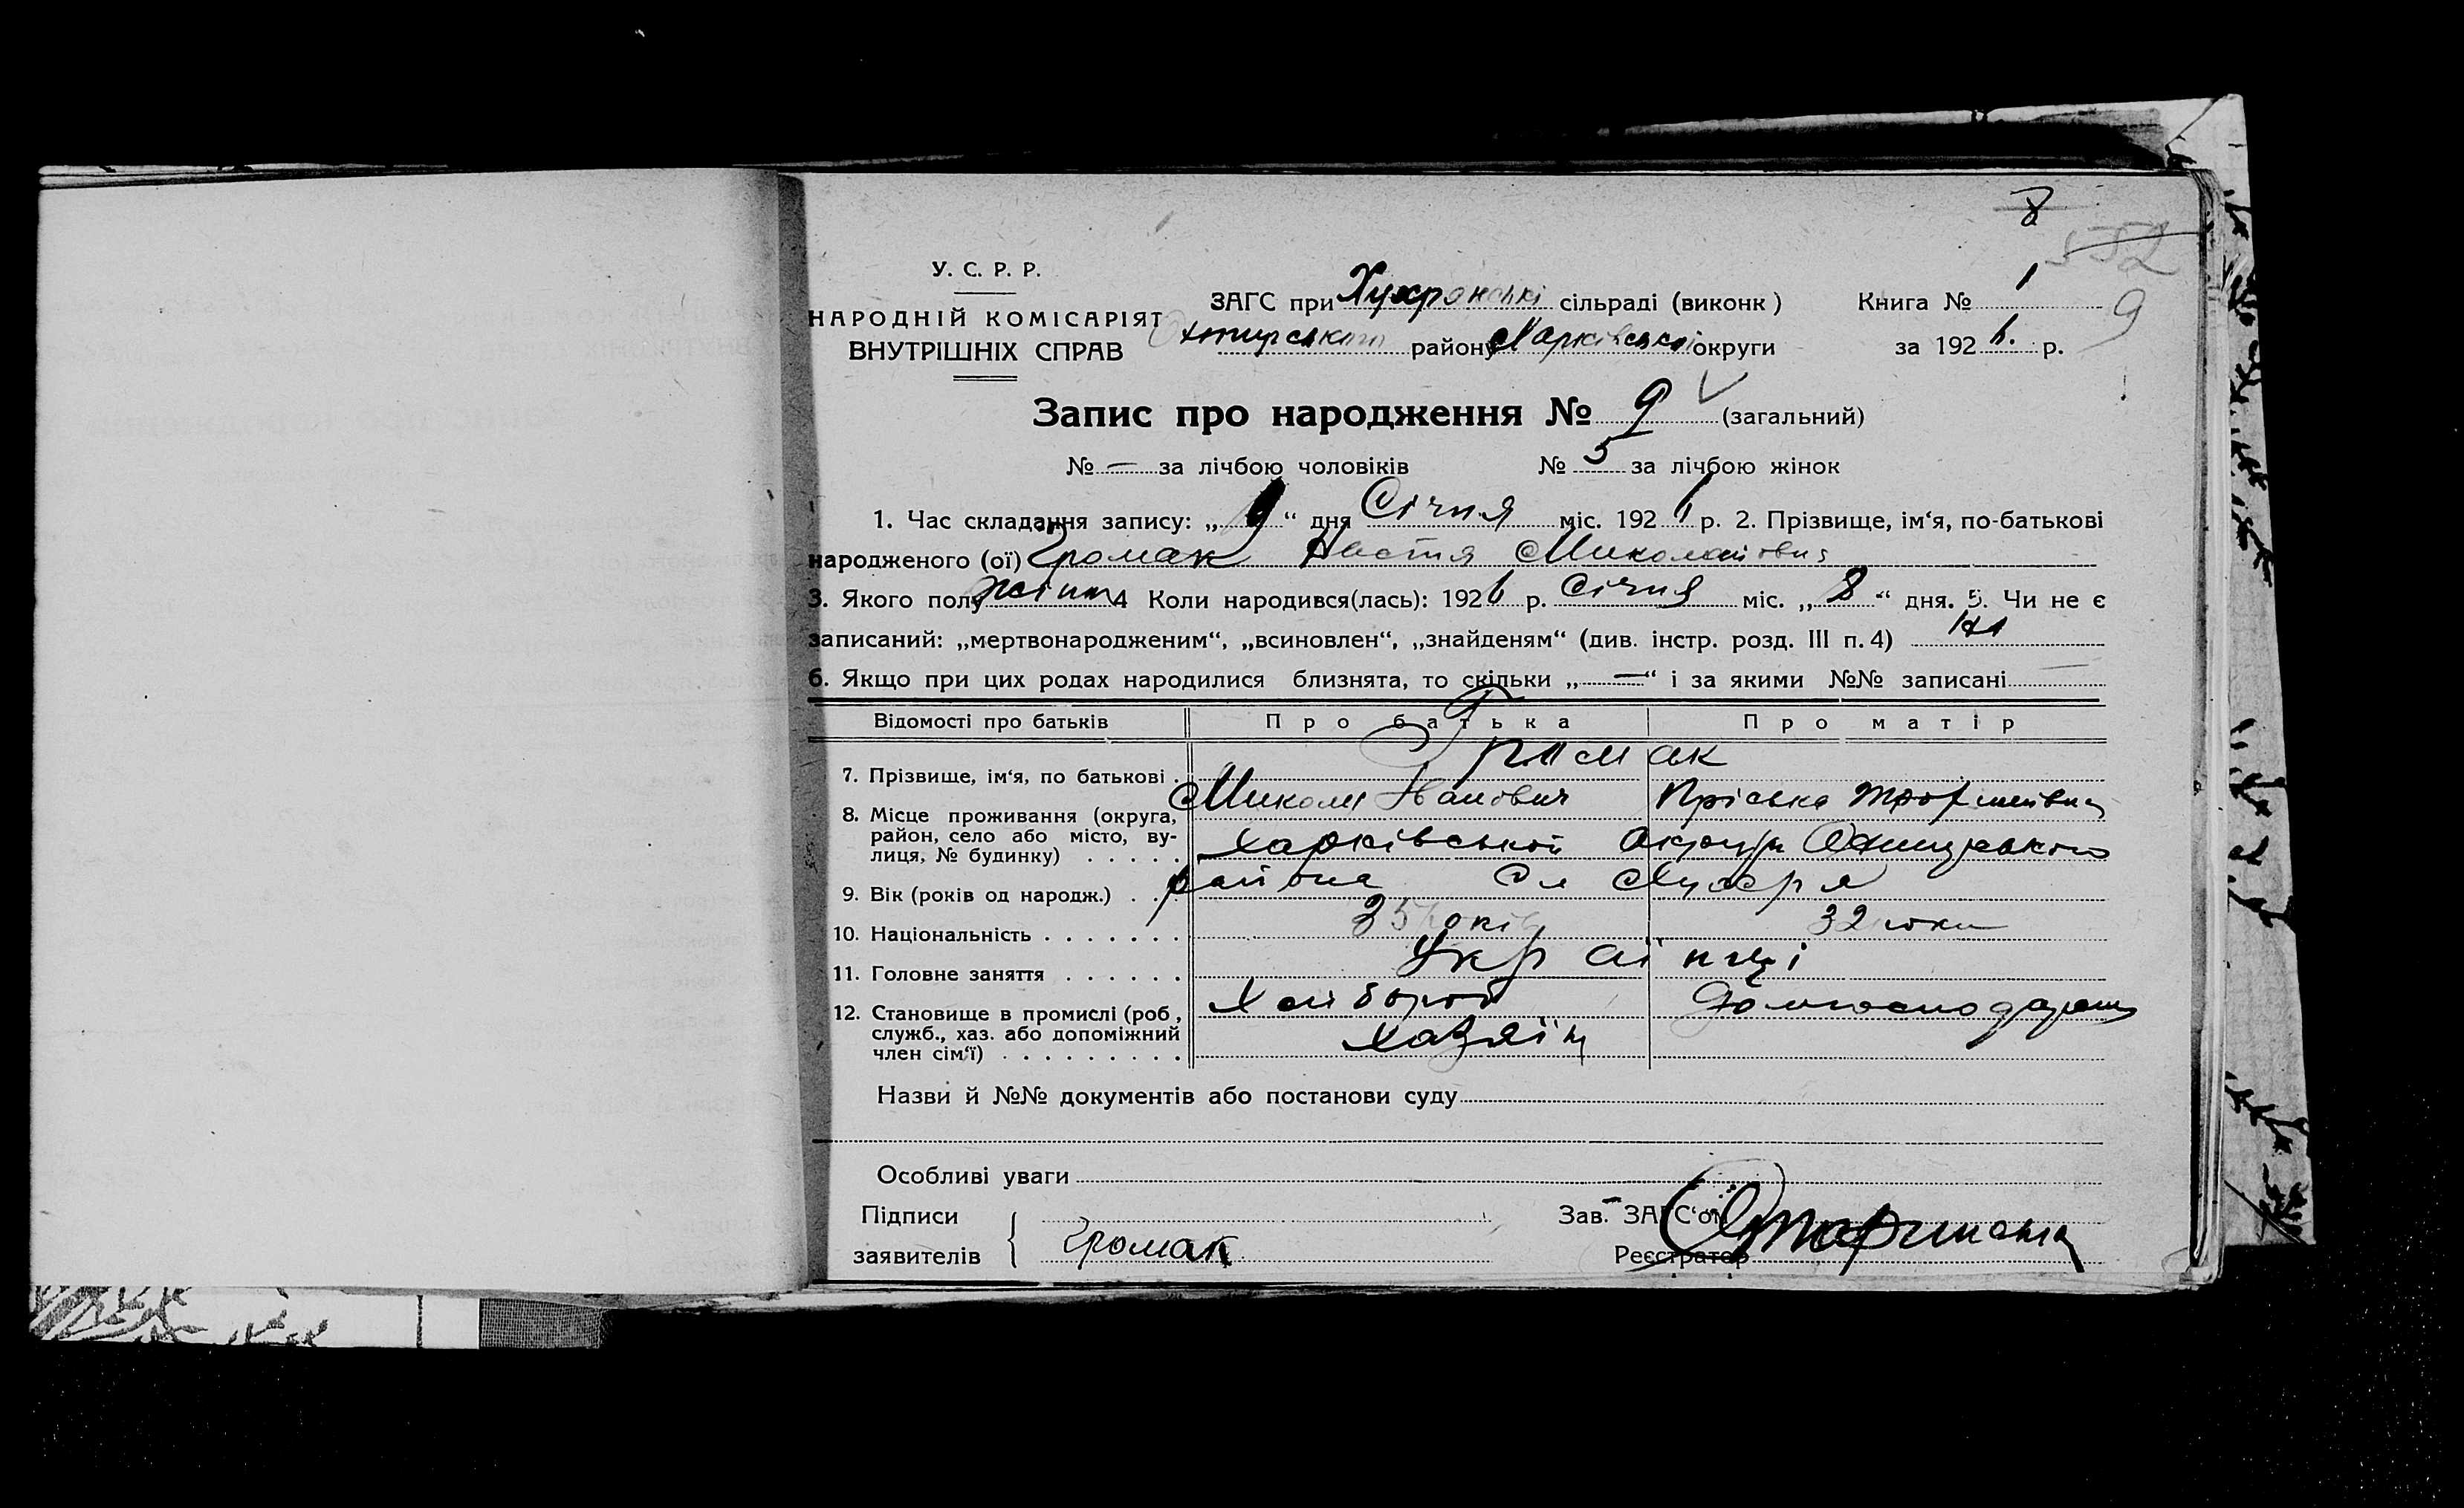 8
552
У. С. Р. Р.
НАРОДНІЙ КОМІСАРІЯТ
ВНУТРІШНІХ СПРАВ
ЗАГС при Хухрянські сільраді (виконк)
Охтирського району Харківської округи
Книга № 1
9
за 1926. р.
Запис про народження № 9 (загальний)
№ — за лічбою чоловіків № 5 за лічбою жінок
1. Час складання запису: „9“ дня Січня міс. 1926 р. 2. Прізвище, ім‘я, по-батькові
народженого (ої) Громак Настя Миколаївна
3. Якого полу жіноч 4 Коли народився(лась): 1926 р. Січня міс. „8“ дня. 5. Чи не є
записаний: „мертвонародженим“, „всиновлен“, „знайденям“ (див. інстр. розд. III п. 4) Ні
6. Якщо при цих родах народилися близнята, то скільки „—“ і за якими №№ записані —
Відомості про батьків Про батька Про матір
Громак
7. Прізвище, ім‘я, по батькові .
Микола Іванович Пріська
8. Місце проживання (округа,
район, село або місто, ву-
лиця, № будинку) . . . . .
Харківської Округи Охтирського
района Сл Хухря
9. Вік (років од народж.) . . .
35 років 32 роки
10. Національність . . . . . . .
Українці
11. Головне заняття . . . . . .
Хлібороб Домогосподарка
12. Становище в промислі (роб.,
служб., хаз. або допоміжний
член сім‘ї) . . . . . . . . .
Хазяїн
Назви й №№ документів або постанови суду
Особливі уваги
Підписи
заявителів
Громак
Зав. ЗАГС‘ом
Реєстратор